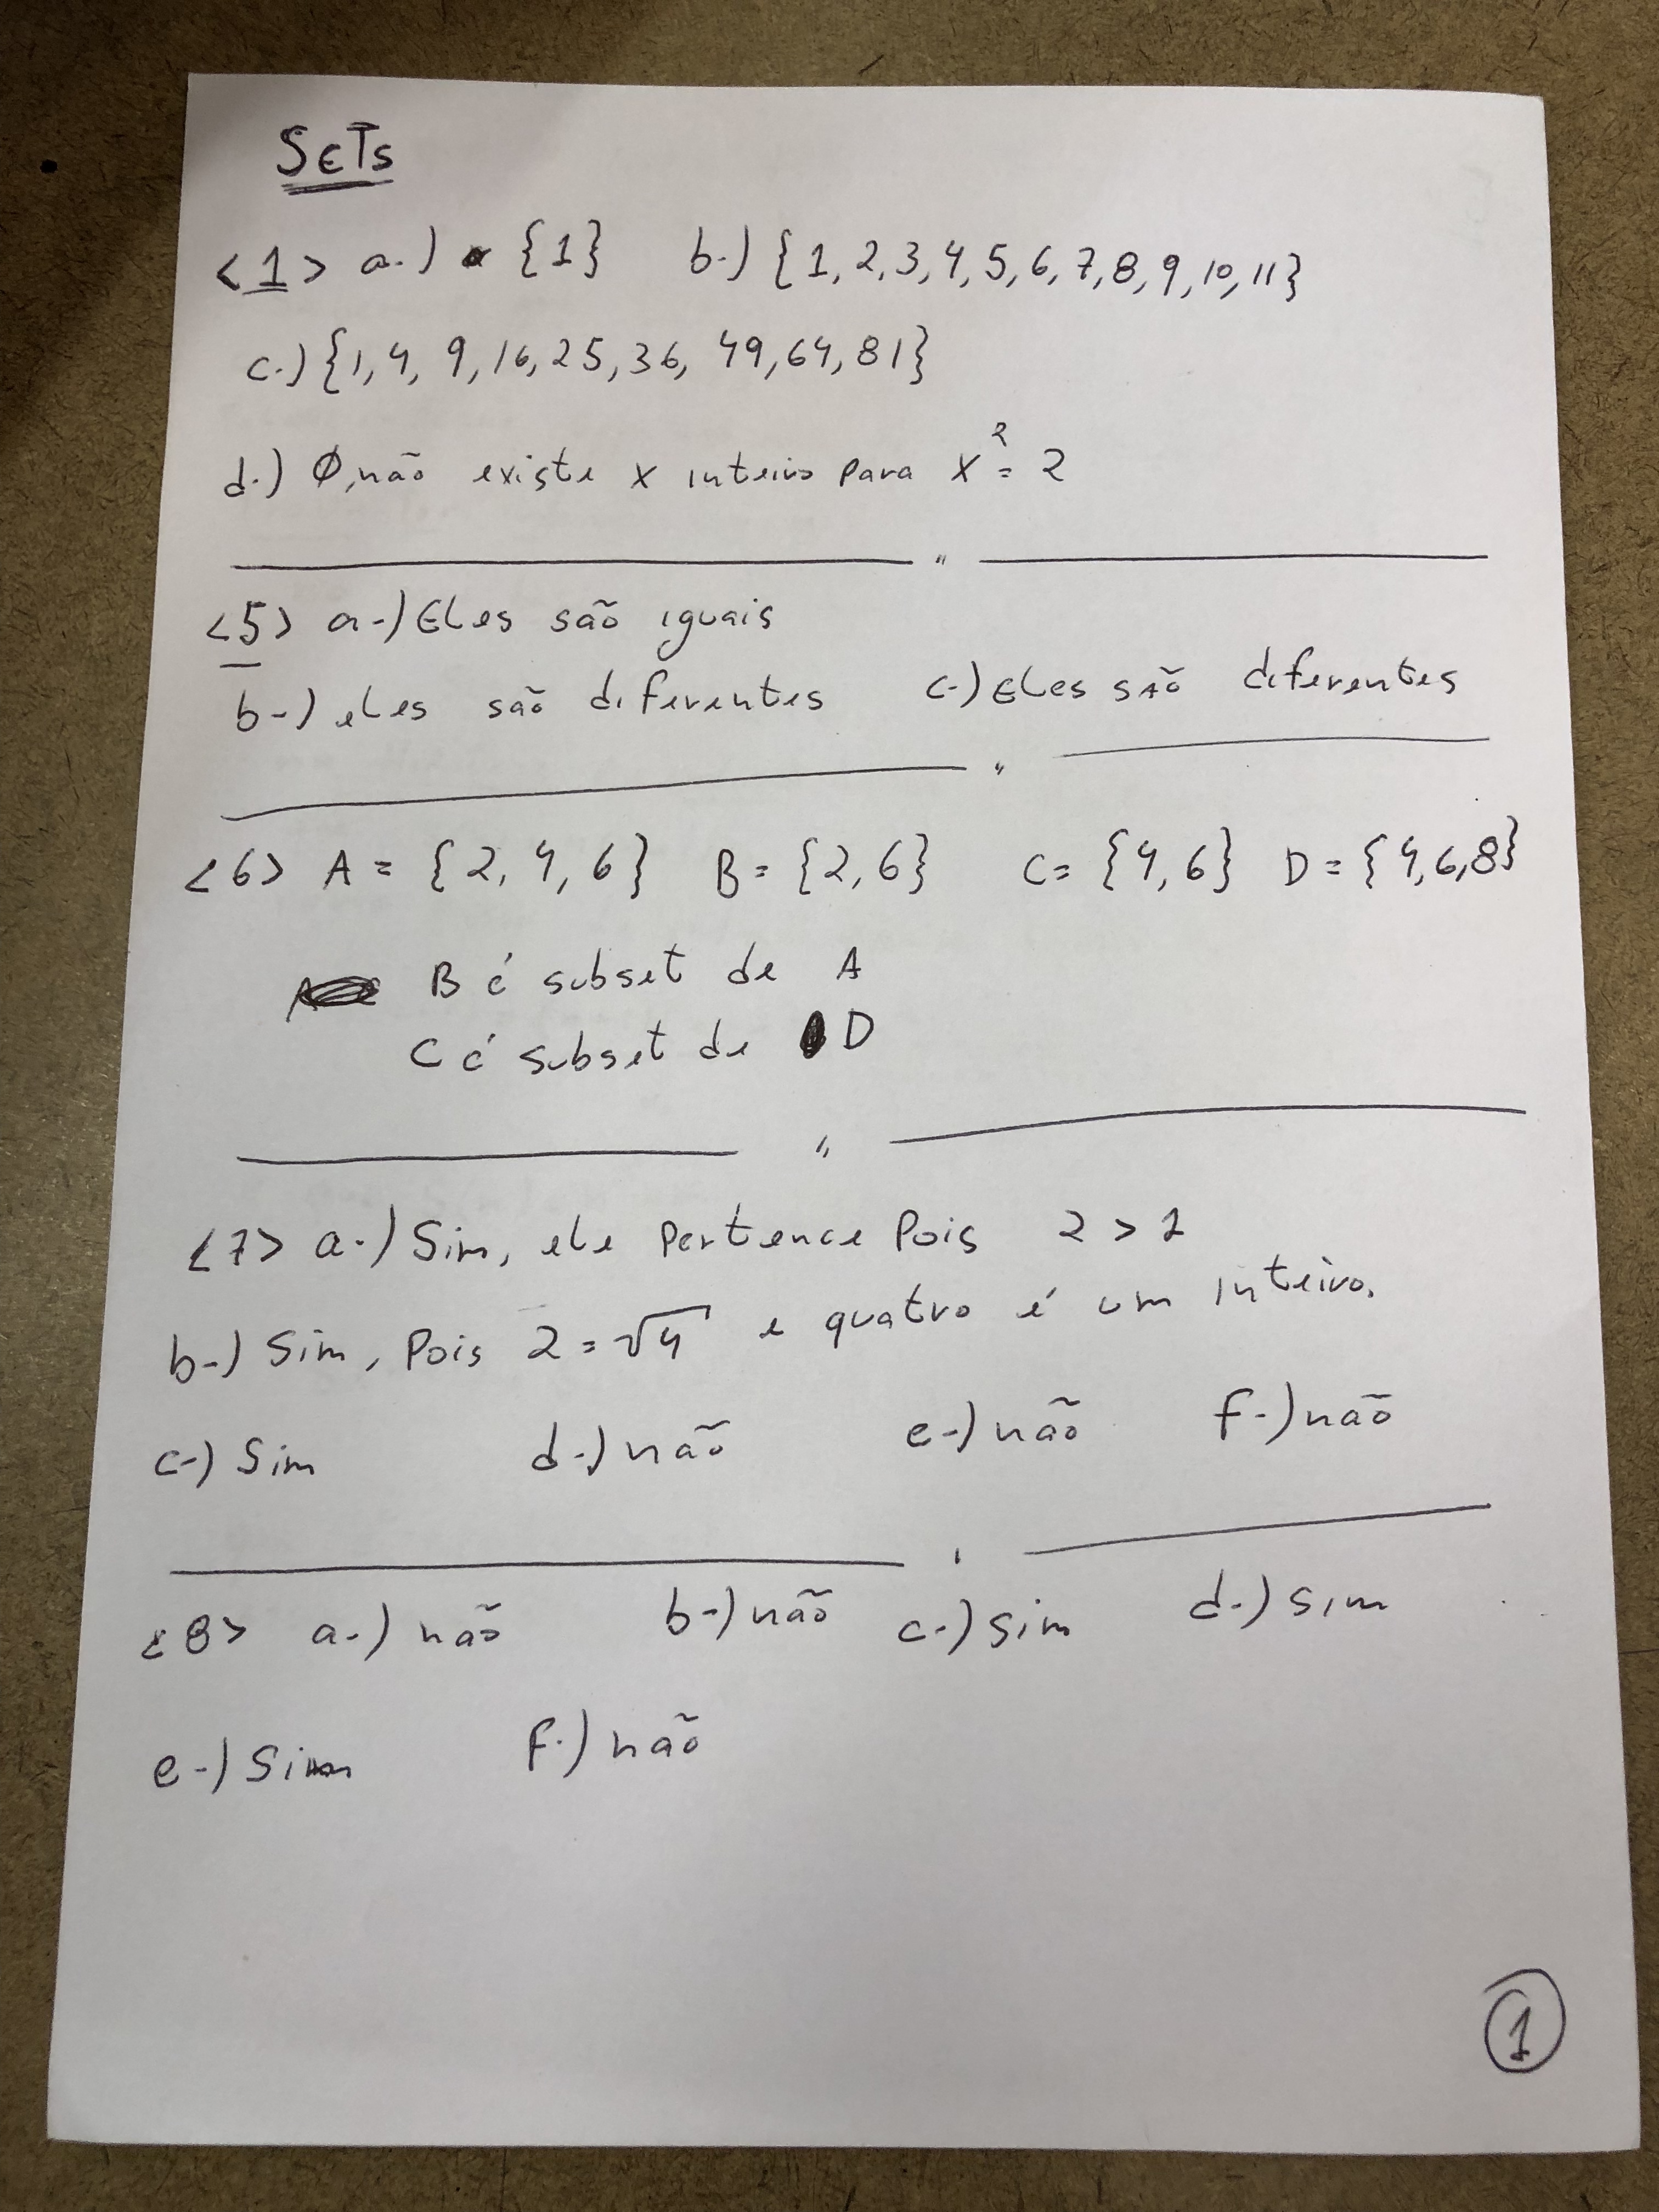 SETs
<1> a.) {1} b.) {1, 2, 3, 4, 5, 6, 7, 8, 9, 10, 11}
c.) {1, 4, 9, 16, 25, 36, 49, 64, 81}
d.) Ø, não existe x inteiro para x² = 2
<5> a-) ELes são iguais
b-) eLes são diferentes c-) ELes são diferentes
<6> A = {2, 4, 6} B = {2, 6} C = {4, 6} D = {4, 6, 8}
B é subset de A
C é subset de D
<7> a-) Sim, ele pertence pois 2 > 1
b-) Sim, pois 2 = √4 e quatro é um inteiro.
c-) Sim d-) não e-) não f-) não
<8> a-) não b-) não c-) sim d-) sim
e-) Sim f-) não
1